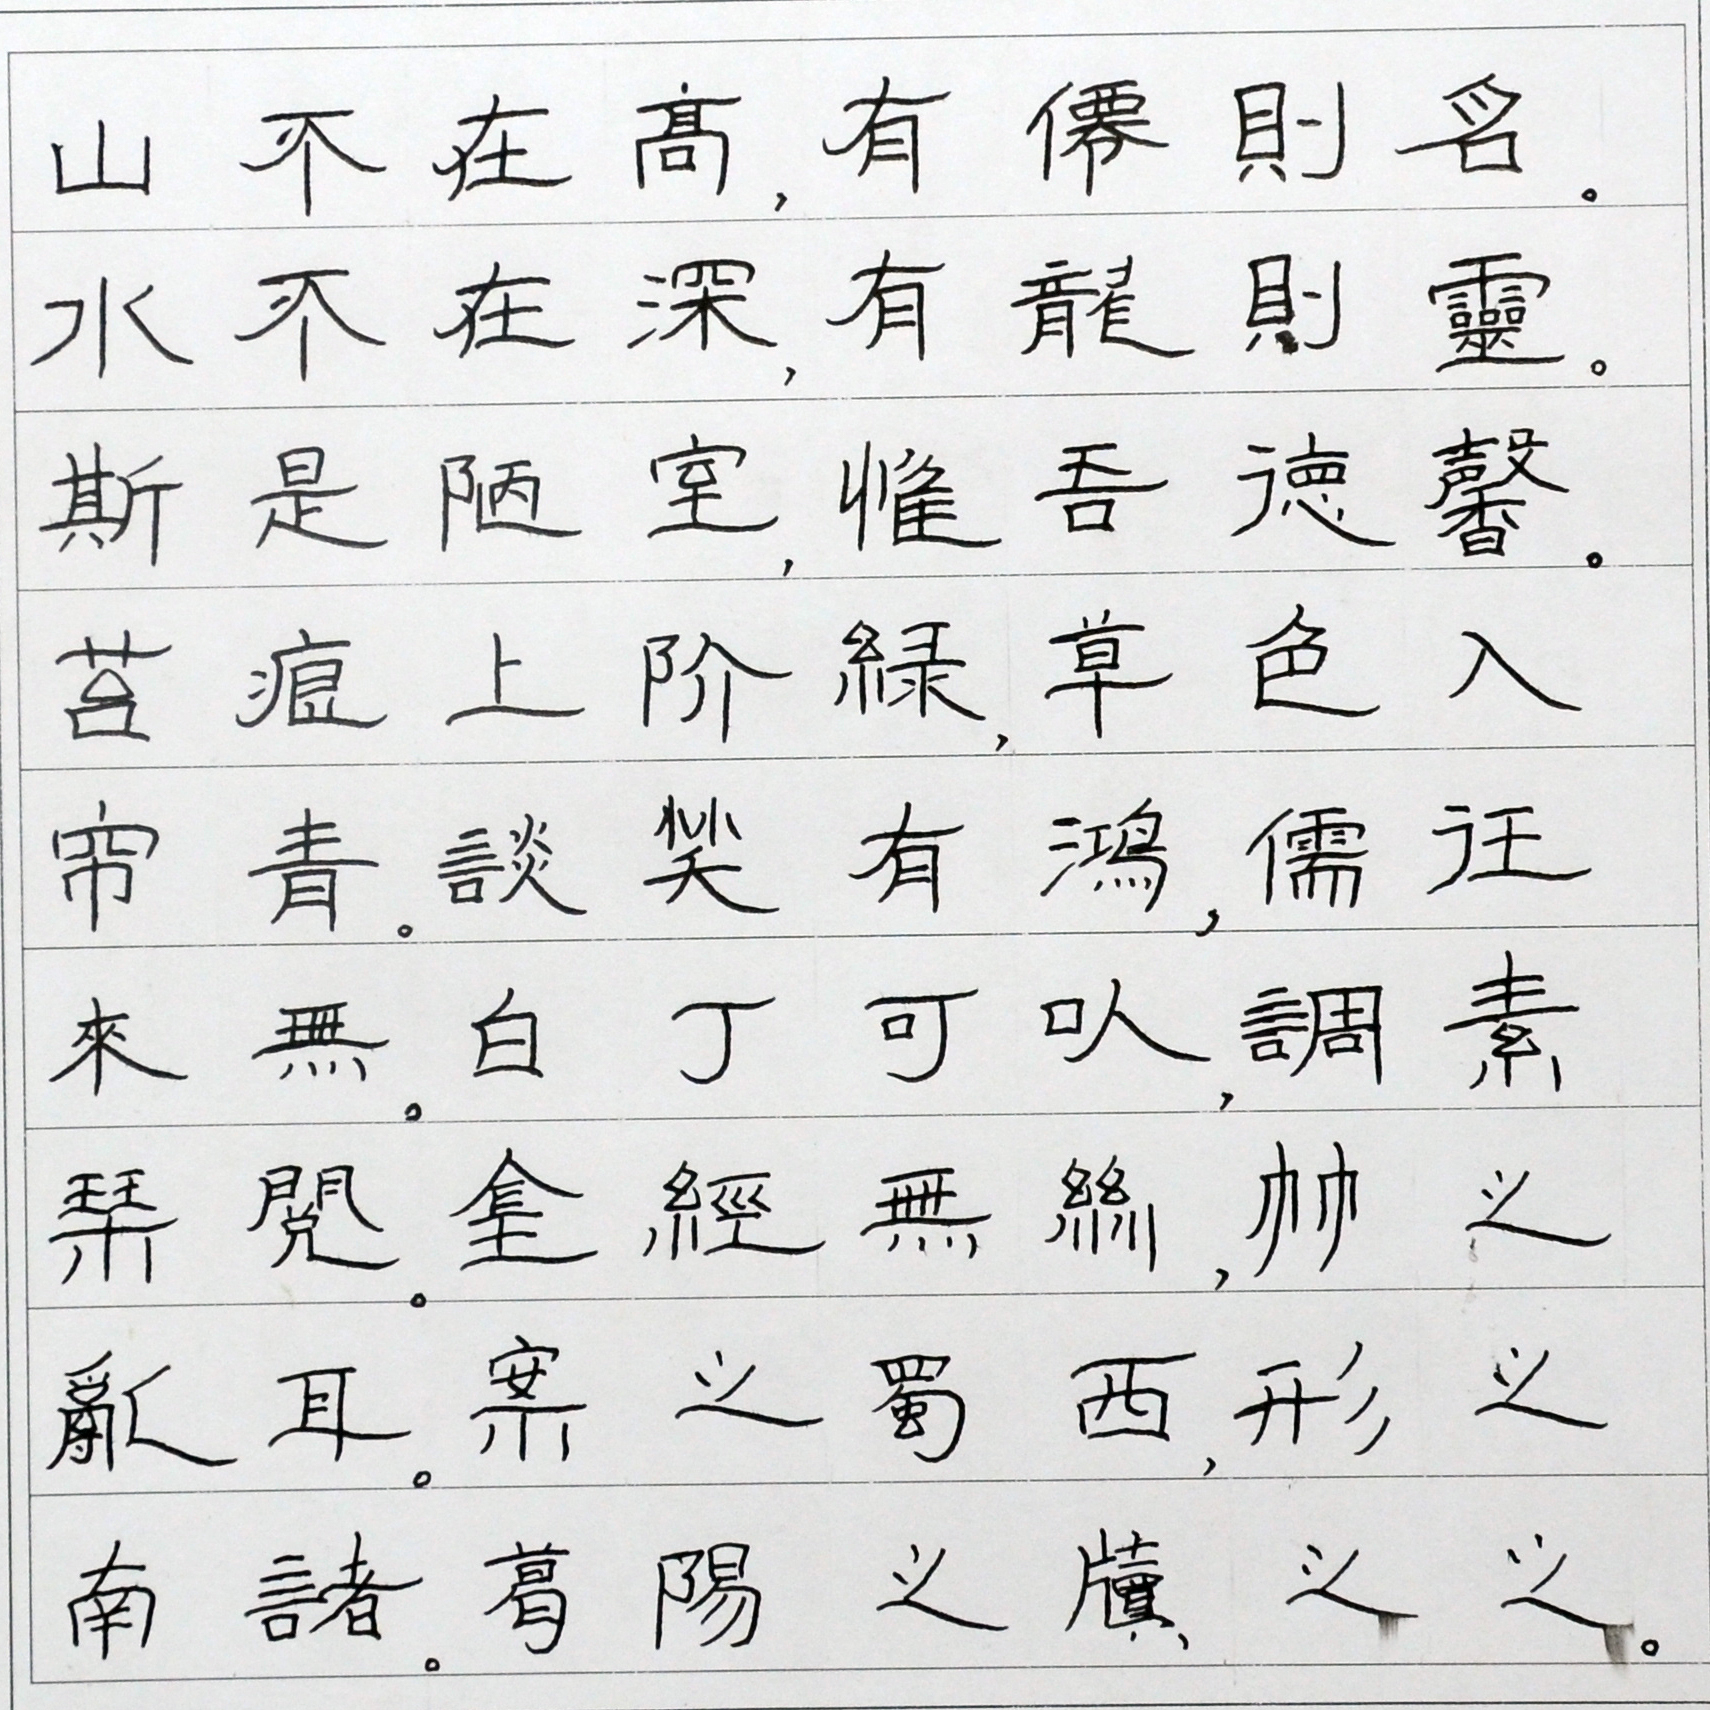 山不在高,有僊則名。
水不在深,有龍則靈。
斯是陋室,惟吾德馨。
苔痕上阶綠,草色入
帘青。談笑有鴻,儒往
來無。白丁可以,調素
琴閱。金經無絲,竹之
亂耳。案之蜀西,形之
南諸。葛陽之牘、之之。